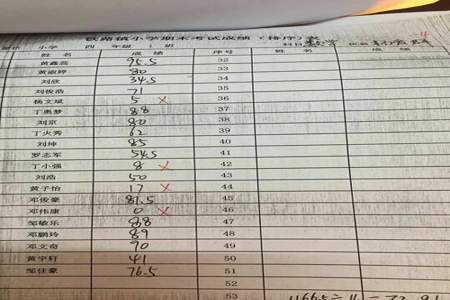 铁路镇小学期末考试成绩（排序）表
小学 四 年级 1 班 科目 数学
姓名 成绩 序号 姓名 成绩
黄鑫蕊 95.5 32
黄淑婷 80 33
刘欣 34.5 34
刘俊浩 71 35
杨文斌 5 × 36
丁惠梦 88 37
刘京 80 38
丁火秀 62 39
刘坤 85 40
罗志军 54.5 41
丁小强 8 × 42
刘浩 50 43
黄子怡 17 × 44
邓俊豪 81.5 45
邓伟康 0 × 46
邹敏乐 88 47
邓鹏玲 89 48
邓文奇 90 49
黄宇轩 41 50
邹佳豪 76.5 51
52
53